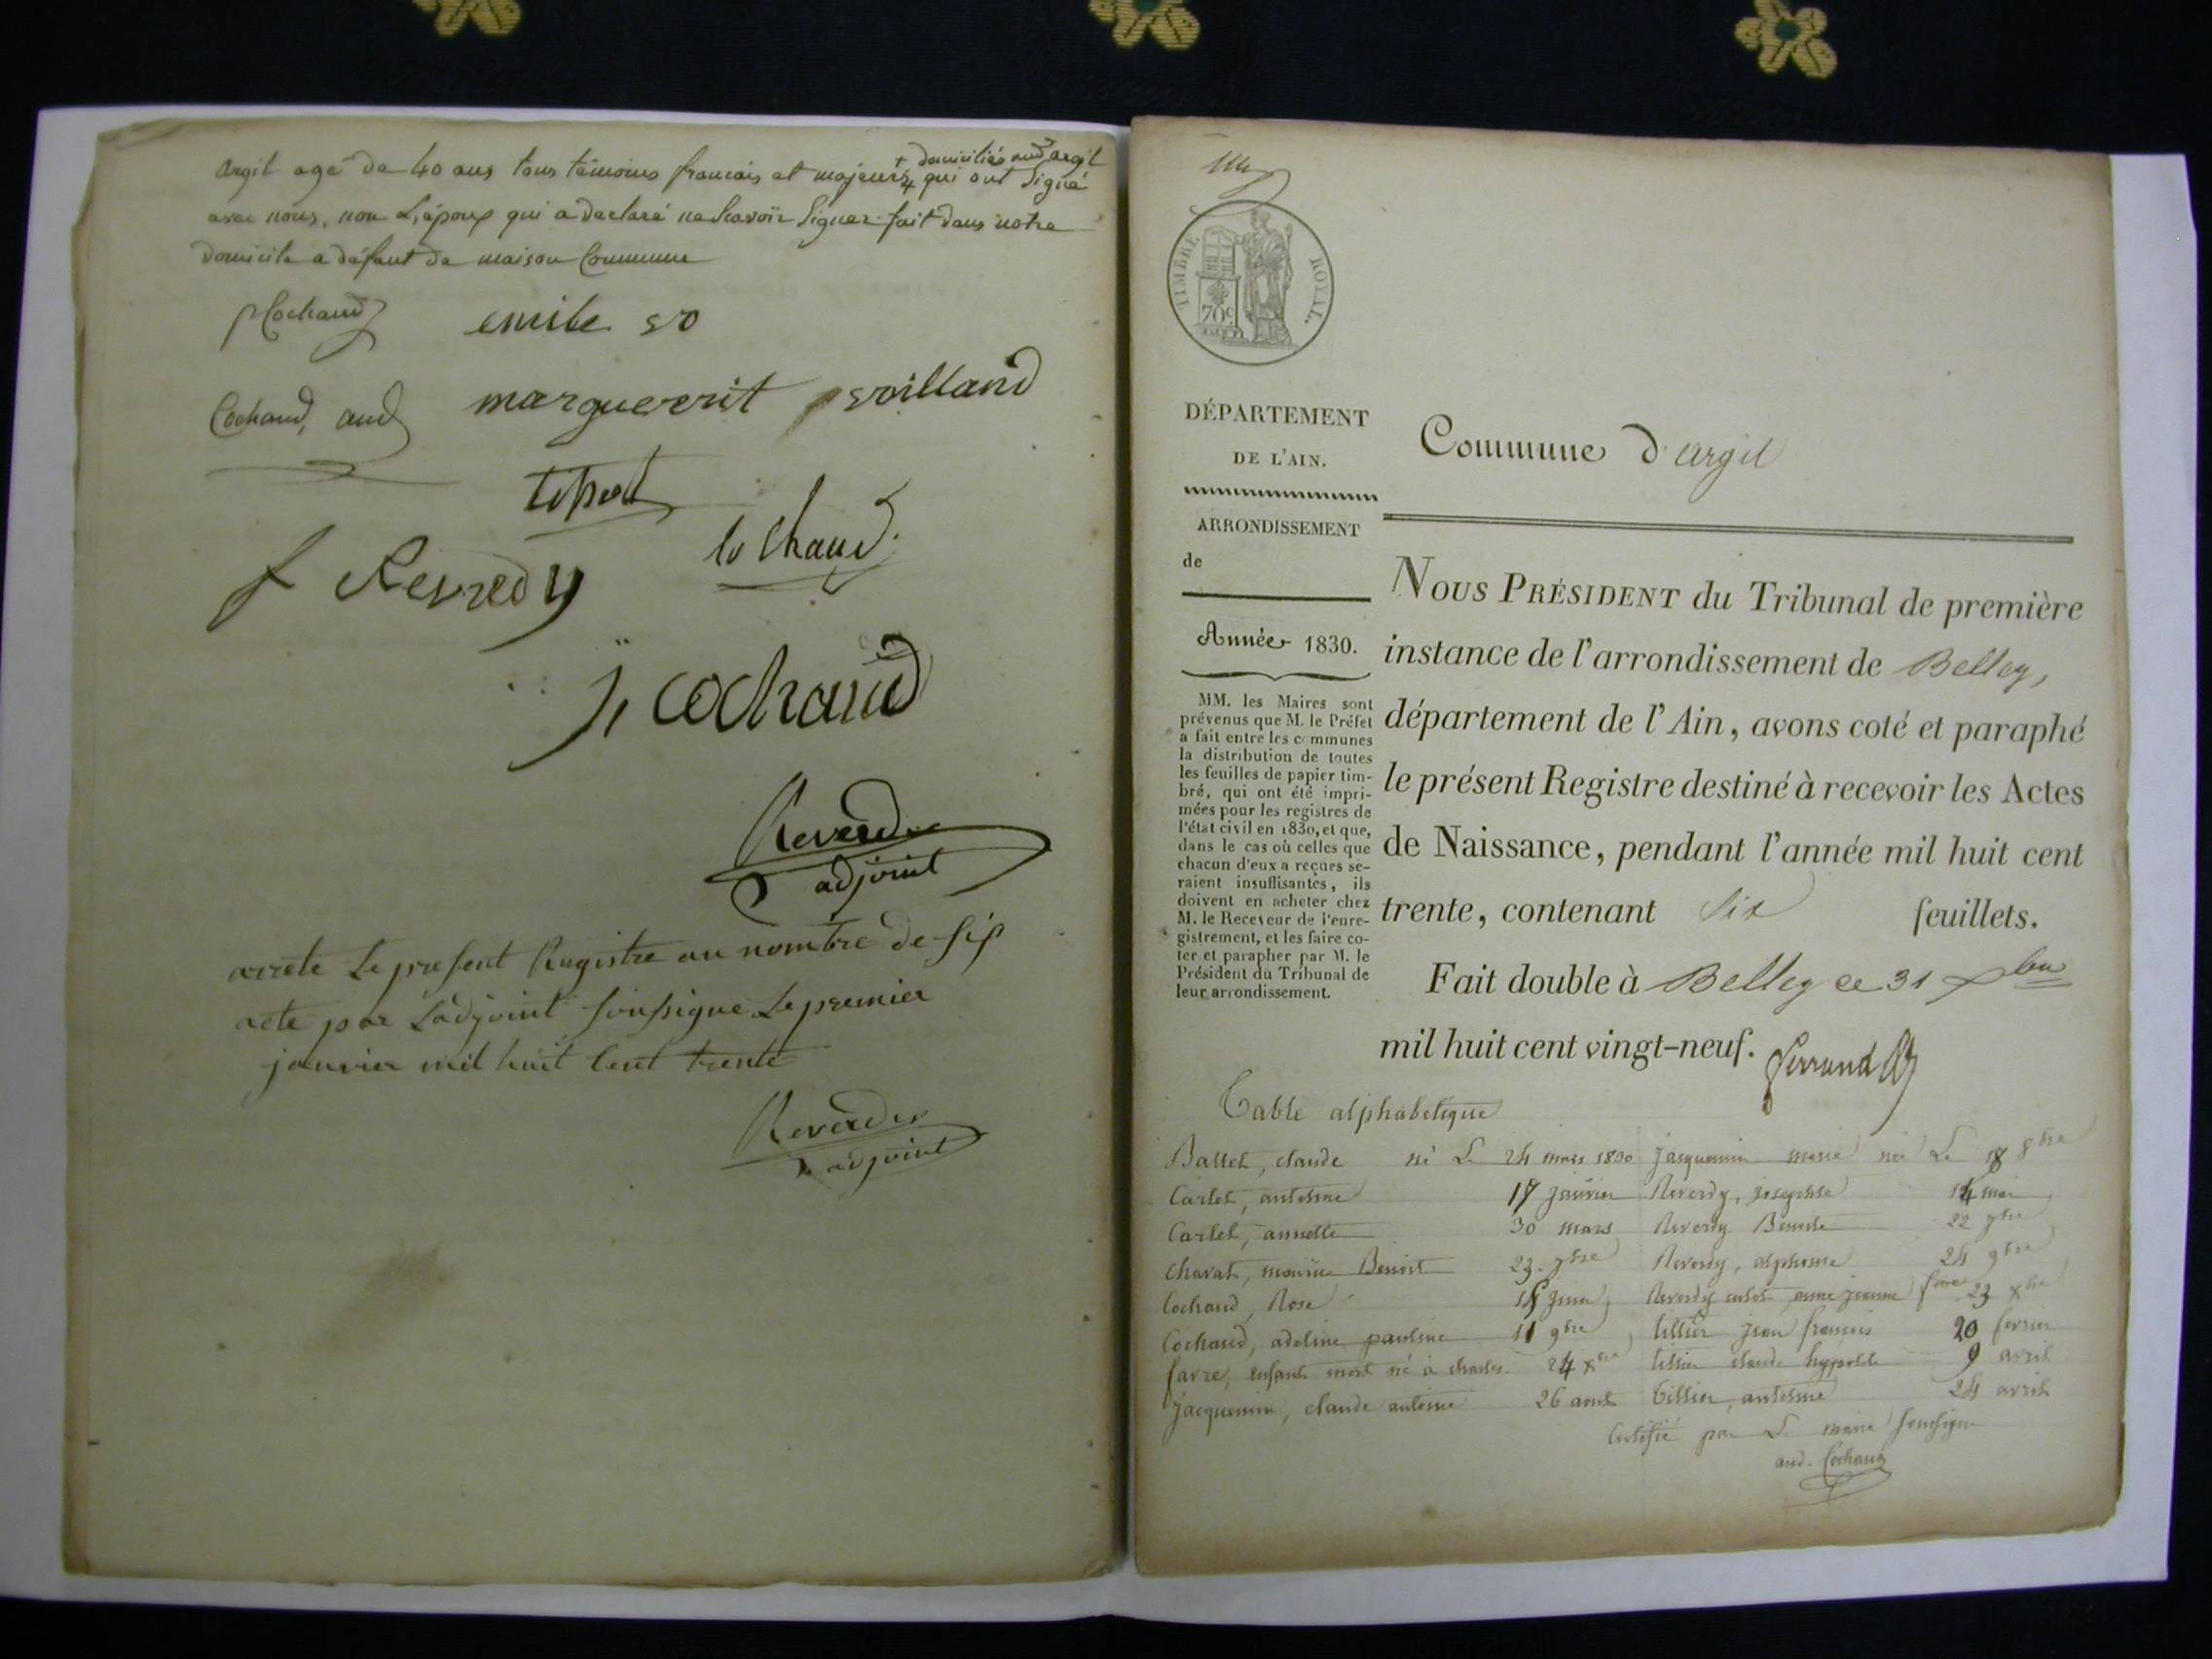 argil agé de 40 ans tous témoins francais et majeurs + domiciliés aud argil qui ont signé
avec nous, non L'époux qui a declaré ne Scavoir Signer. fait dans notre
domicile a défaut de maison Commune
Cochaud
emile
Cochaud, and
marguerrit
f Reverdy
Cochaud
j, cochaud
Reverdy
adjoint
arrete Le present Registre au nombre de six
acte par L'adjoint soussigne Le premier
janvier mil huit Cent trente
Reverdy
adjoint
TIMBRE ROYAL.
70c
DÉPARTEMENT
DE L'AIN.
Commune d'argil
ARRONDISSEMENT
de
Année 1830.
MM. les Maires sont
prévenus que M. le Préfet
a fait entre les communes
la distribution de toutes
les feuilles de papier tim-
bré, qui ont été impri-
mées pour les registres de
l'état civil en 1830, et que,
dans le cas où celles que
chacun d'eux a reçues se-
raient insuffisantes, ils
doivent en acheter chez
M. le Receveur de l'enre-
gistrement, et les faire co-
ter et parapher par M. le
Président du Tribunal de
leur arrondissement.
NOUS PRÉSIDENT du Tribunal de première
instance de l'arrondissement de Belley,
département de l'Ain, avons coté et paraphé
le présent Registre destiné à recevoir les Actes
de Naissance, pendant l'année mil huit cent
trente, contenant Six feuillets.
Fait double à Belley ce 31 Xbre
mil huit cent vingt-neuf.
Table alphabetique
Ballet, claude né Le 24 mars 1830
Carlet, antoine 17 Janvier
Carlet, annette 30 mars
Charat, Benoit 23. 7bre
Cochaud, Rose
Cochaud, adeline pauline 11 9bre
favre, enfant mort né à charles. 24 Xbre
Jacquemin, claude antoine 26 aout
Jacquemin marie née Le 18 8bre
Reverdy, josephte 14 mai
Reverdy Benoite 22 7bre
Reverdy, alphonse 24 9bre
Reverdy anne jeanne 23 Xbre
tillier jean francois 20 fevrier
tillier claude hypolite 9 avril
tillier, antoine 24 avril
Certifié par Le maire soussigné
and. Cochaud